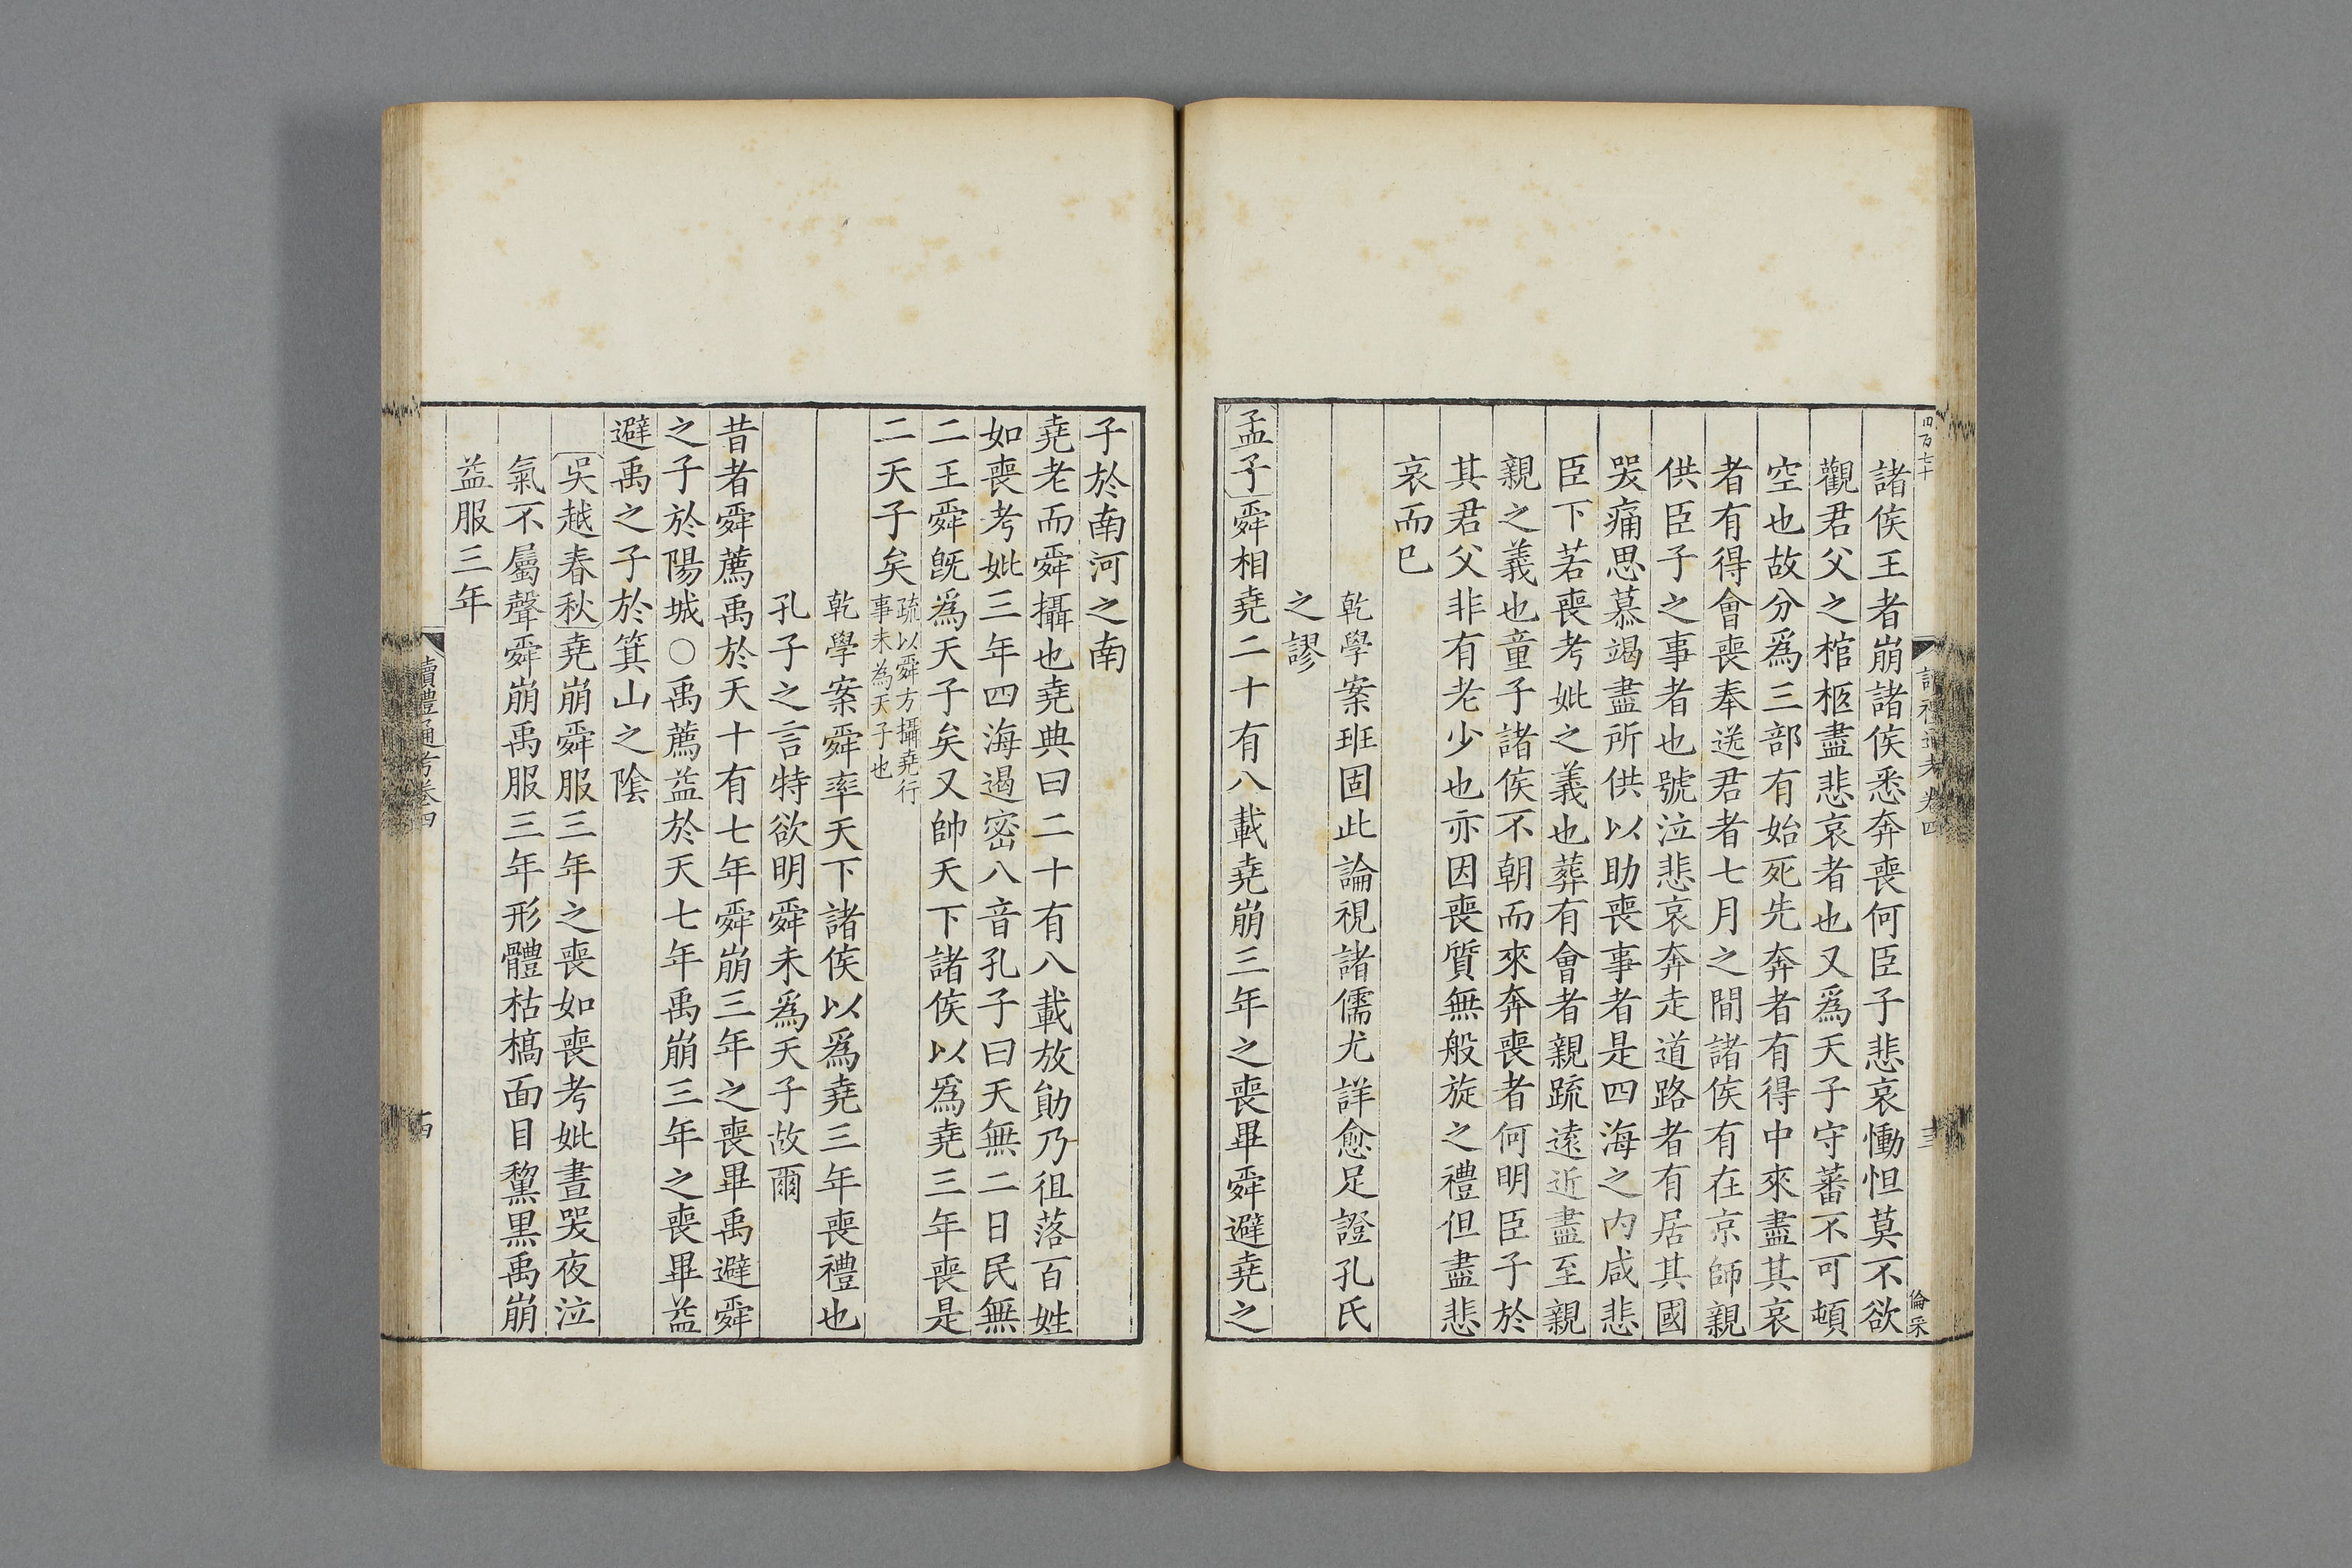 四百七十
讀禮通考卷四
倫采
諸侯王者崩諸侯悉奔喪何臣子悲哀慟怛莫不欲
觀君父之棺柩盡悲哀者也又爲天子守蕃不可頓
空也故分爲三部有始死先奔者有得中來盡其哀
者有得會喪奉送君者七月之間諸侯有在京師親
供臣子之事者也號泣悲哀奔走道路者有居其國
哭痛思慕竭盡所供以助喪事者是四海之内咸悲
臣下若喪考妣之義也葬有會者親疏遠近盡至親
親之義也童子諸侯不朝而來奔喪者何明臣子於
其君父非有老少也亦因喪質無般旋之禮但盡悲
哀而已
乾學案班固此論視諸儒尤詳愈足證孔氏
之謬
孟子舜相堯二十有八載堯崩三年之喪畢舜避堯之
子於南河之南
堯老而舜攝也堯典曰二十有八載放勛乃徂落百姓
如喪考妣三年四海遏密八音孔子曰天無二日民無
二王舜旣爲天子矣又帥天下諸侯以爲堯三年喪是
二天子矣疏以舜方攝堯行事未為天子也
乾學案舜率天下諸侯以爲堯三年喪禮也
孔子之言特欲明舜未爲天子故爾
昔者舜薦禹於天十有七年舜崩三年之喪畢禹避舜
之子於陽城○禹薦益於天七年禹崩三年之喪畢益
避禹之子於箕山之陰
吳越春秋堯崩舜服三年之喪如喪考妣晝哭夜泣
氣不屬聲舜崩禹服三年形體枯槁面目黧黑禹崩
益服三年
讀禮通考卷四
十四